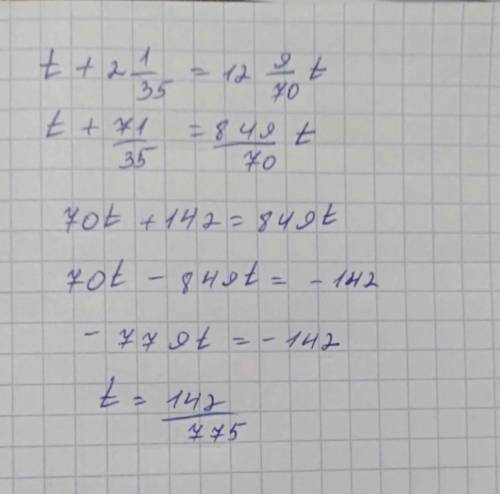 t + 2 1/35 = 12 9/70 t
t + 71/35 = 849/70 t
70t + 142 = 849t
70t - 849t = - 142
- 779t = - 142
t = 142/775